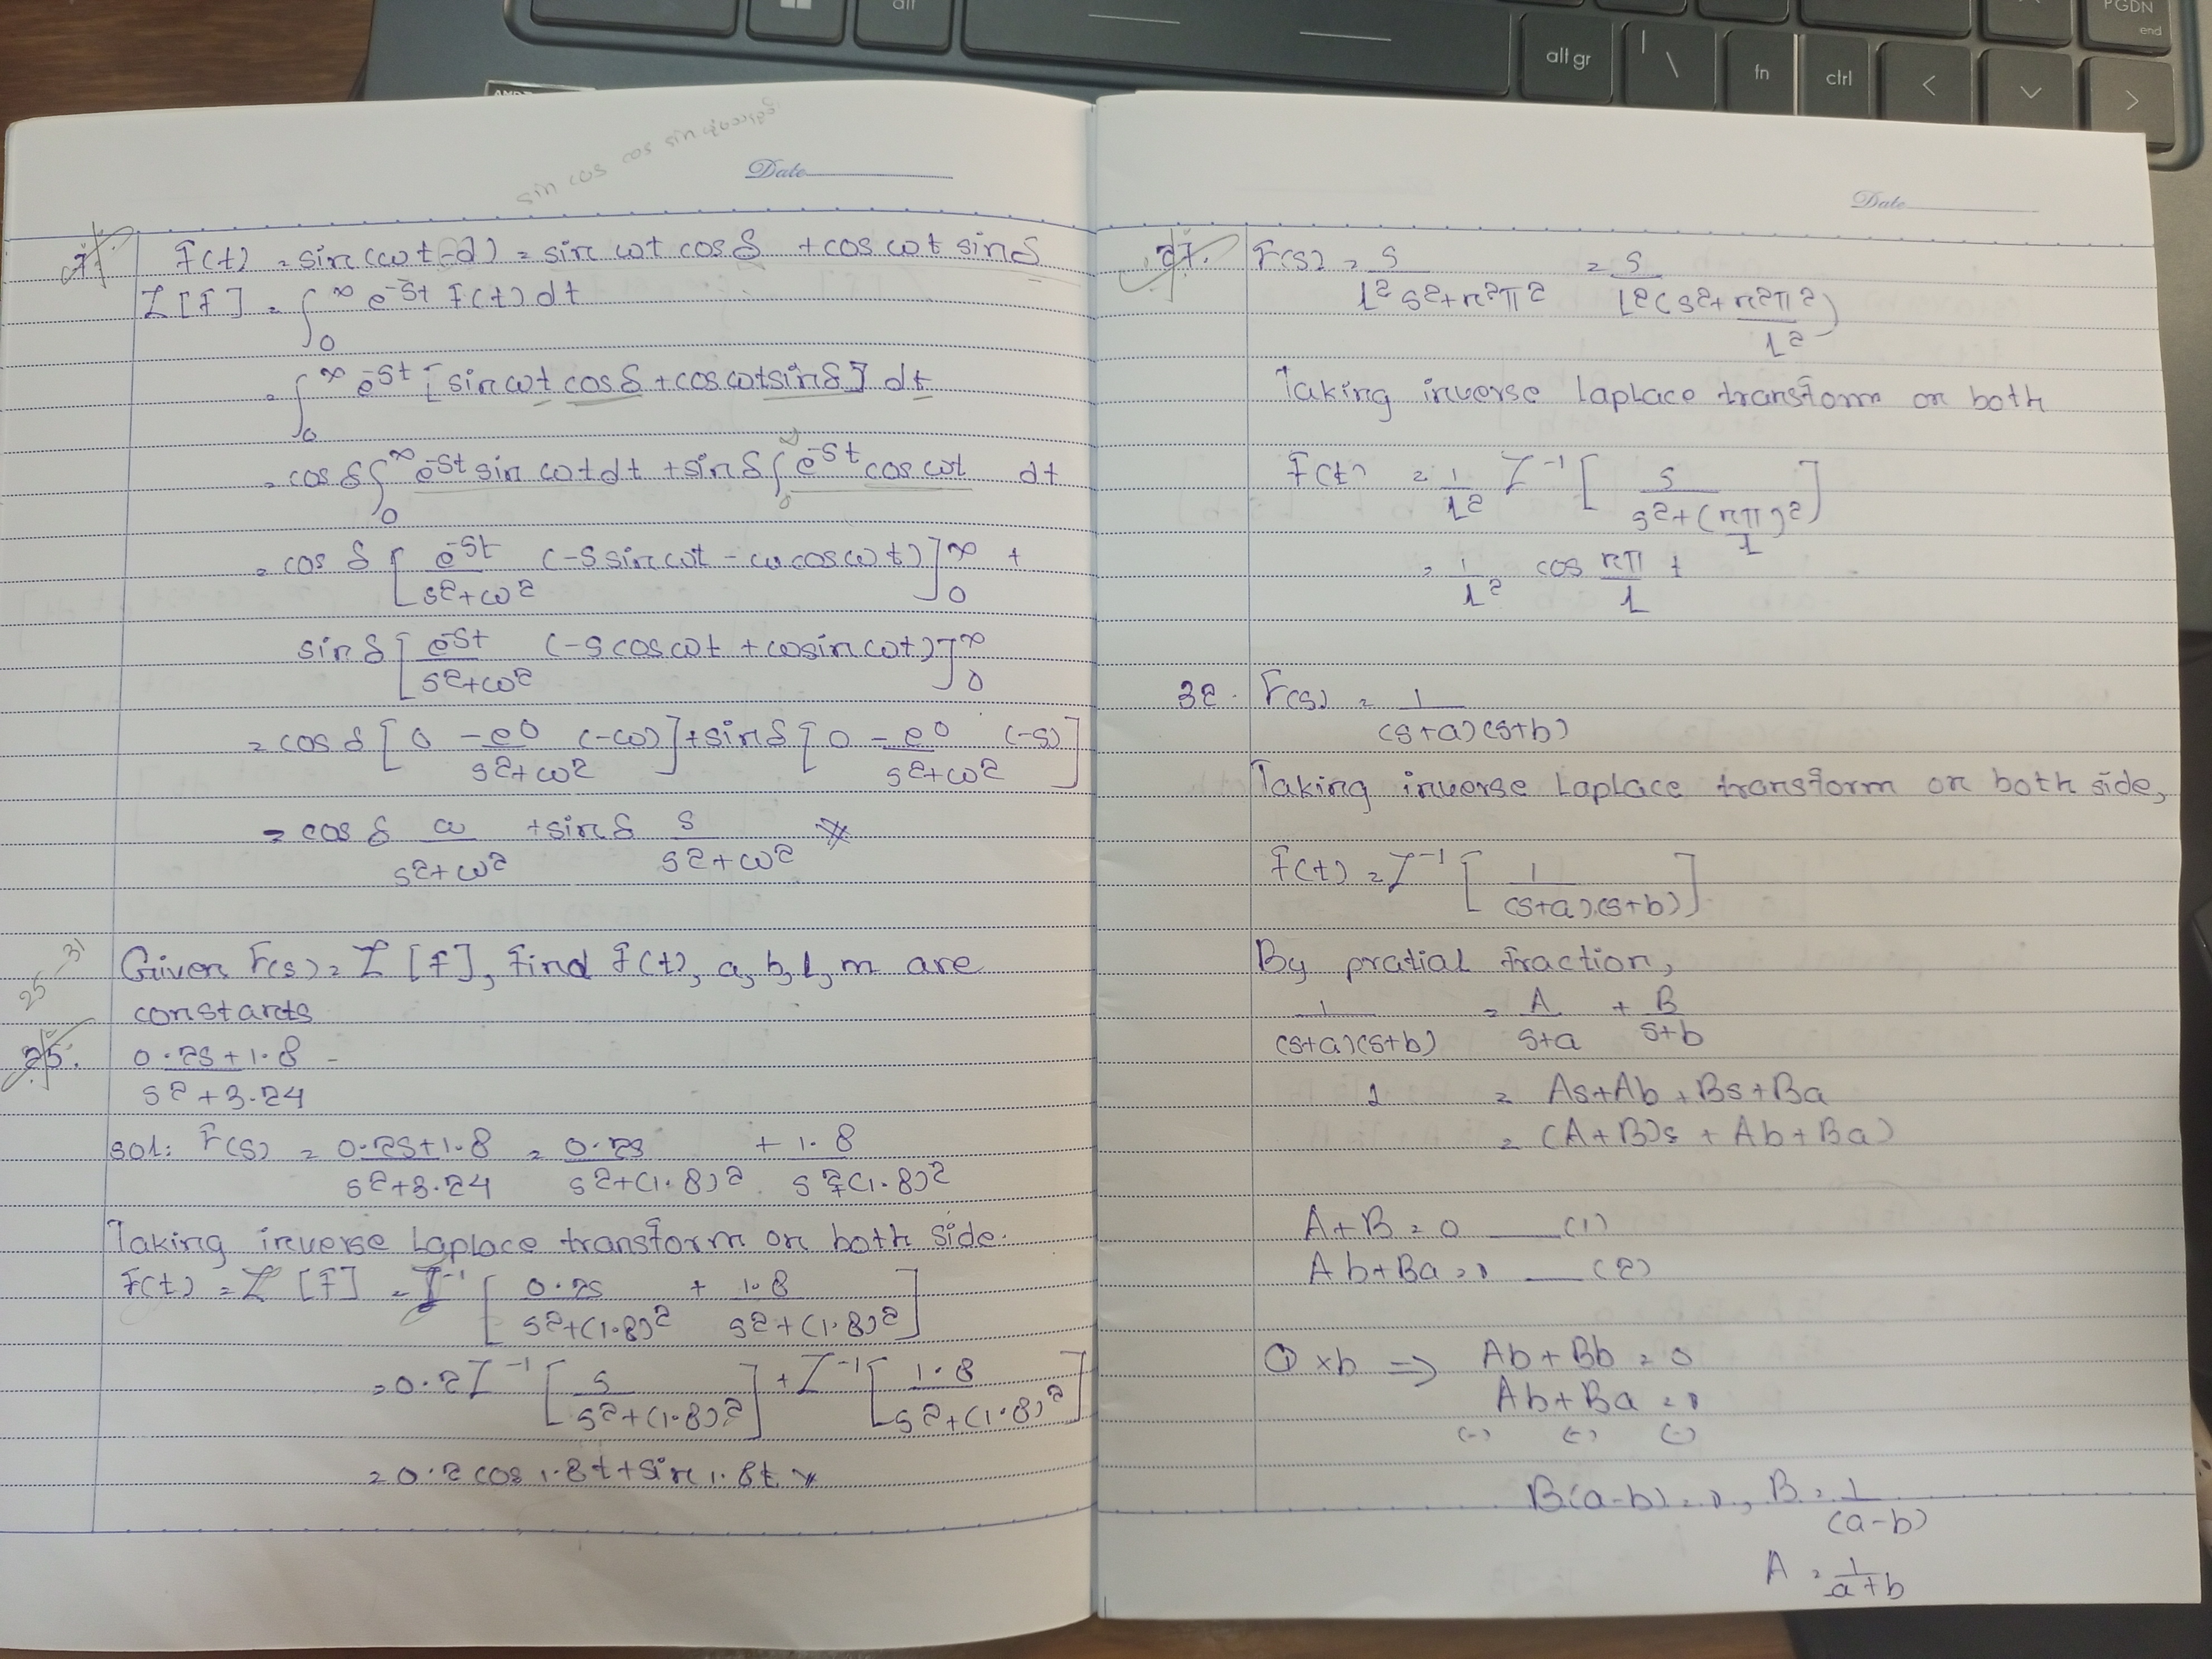 all gr
| \
fn
ctrl
<
>
PGDN
end
alt
AMD
sin cos cos sin
Date
7. f(t) = sin (ωt -d) = sin ωt cos δ + cos ωt sin δ
L[f] = ∫₀^∞ e^-st f(t) dt
= ∫₀^∞ e^-st [sin ωt cos δ + cos ωt sin δ] dt
= cos δ ∫₀^∞ e^-st sin ωt dt + sin δ ∫₀^∞ e^-st cos ωt dt
= cos δ [e^-st / s²+ω² (-s sin ωt - ω cos ωt)]₀^∞ +
sin δ [e^-st / s²+ω² (-s cos ωt + ω sin ωt)]₀^∞
= cos δ [0 - e⁰ / s²+ω² (-ω)] + sin δ [0 - e⁰ / s²+ω² (-s)]
= cos δ ω / s²+ω² + sin δ s / s²+ω²
25 31
Given F(s) = L [f], find f(t), a, b, L, m are
constants
25. 0.2s+1.8 / s²+3.24
sol: F(s) = 0.2s+1.8 / s²+3.24 = 0.2s / s²+(1.8)² + 1.8 / s²+(1.8)²
Taking inverse Laplace transform on both side.
f(t) = L [f] = L⁻¹ [0.2s / s²+(1.8)² + 1.8 / s²+(1.8)²]
= 0.2 L⁻¹ [s / s²+(1.8)²] + L⁻¹ [1.8 / s²+(1.8)²]
= 0.2 cos 1.8t + sin 1.8t
Date
27. F(s) = s / L²s²+n²π² = s / L²(s²+ n²π² / L²)
Taking inverse Laplace transform on both
f(t) = 1 / L² L⁻¹ [s / s²+(nπ / L)²]
= 1 / L² cos nπ / L t
32. F(s) = 1 / (s+a)(s+b)
Taking inverse Laplace transform on both side,
f(t) = L⁻¹ [1 / (s+a)(s+b)]
By pratial fraction,
1 / (s+a)(s+b) = A / s+a + B / s+b
1 = As+Ab + Bs+Ba
= (A+B)s + Ab+Ba)
A+B = 0 ___ (1)
Ab+Ba = 1 ___ (2)
① ×b ⇒ Ab+Bb = 0
Ab+Ba = 1
(-) (-) (-)
B(a-b) = 1, B = 1 / (a-b)
A = 1 / a+b